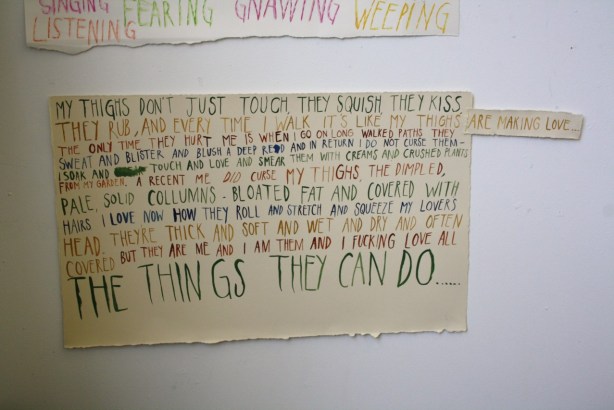 SINGING FEARING GNAWING WEEPING
LISTENING
MY THIGHS DON'T JUST TOUCH, THEY SQUISH, THEY KISS,
THEY RUB, AND EVERY TIME I WALK IT'S LIKE MY THIGHS ARE MAKING LOVE...
THE ONLY TIME THEY HURT ME IS WHEN I GO ON LONG WALKED PATHS THEY
SWEAT AND BLISTER AND BLUSH A DEEP RED AND IN RETURN I DO NOT CURSE THEM -
I SOAK AND TOUCH AND LOVE AND SMEAR THEM WITH CREAMS AND CRUSHED PLANTS
FROM MY GARDEN, A RECENT ME DID CURSE MY THIGHS, THE DIMPLED,
PALE, SOLID COLLUMNS - BLOATED FAT AND COVERED WITH
HAIRS I LOVE NOW HOW THEY ROLL AND STRETCH AND SQUEEZE MY LOVERS
HEAD. THEYRE THICK AND SOFT AND WET AND DRY AND OFTEN
COVERED BUT THEY ARE ME AND I AM THEM AND I FUCKING LOVE ALL
THE THINGS THEY CAN DO......